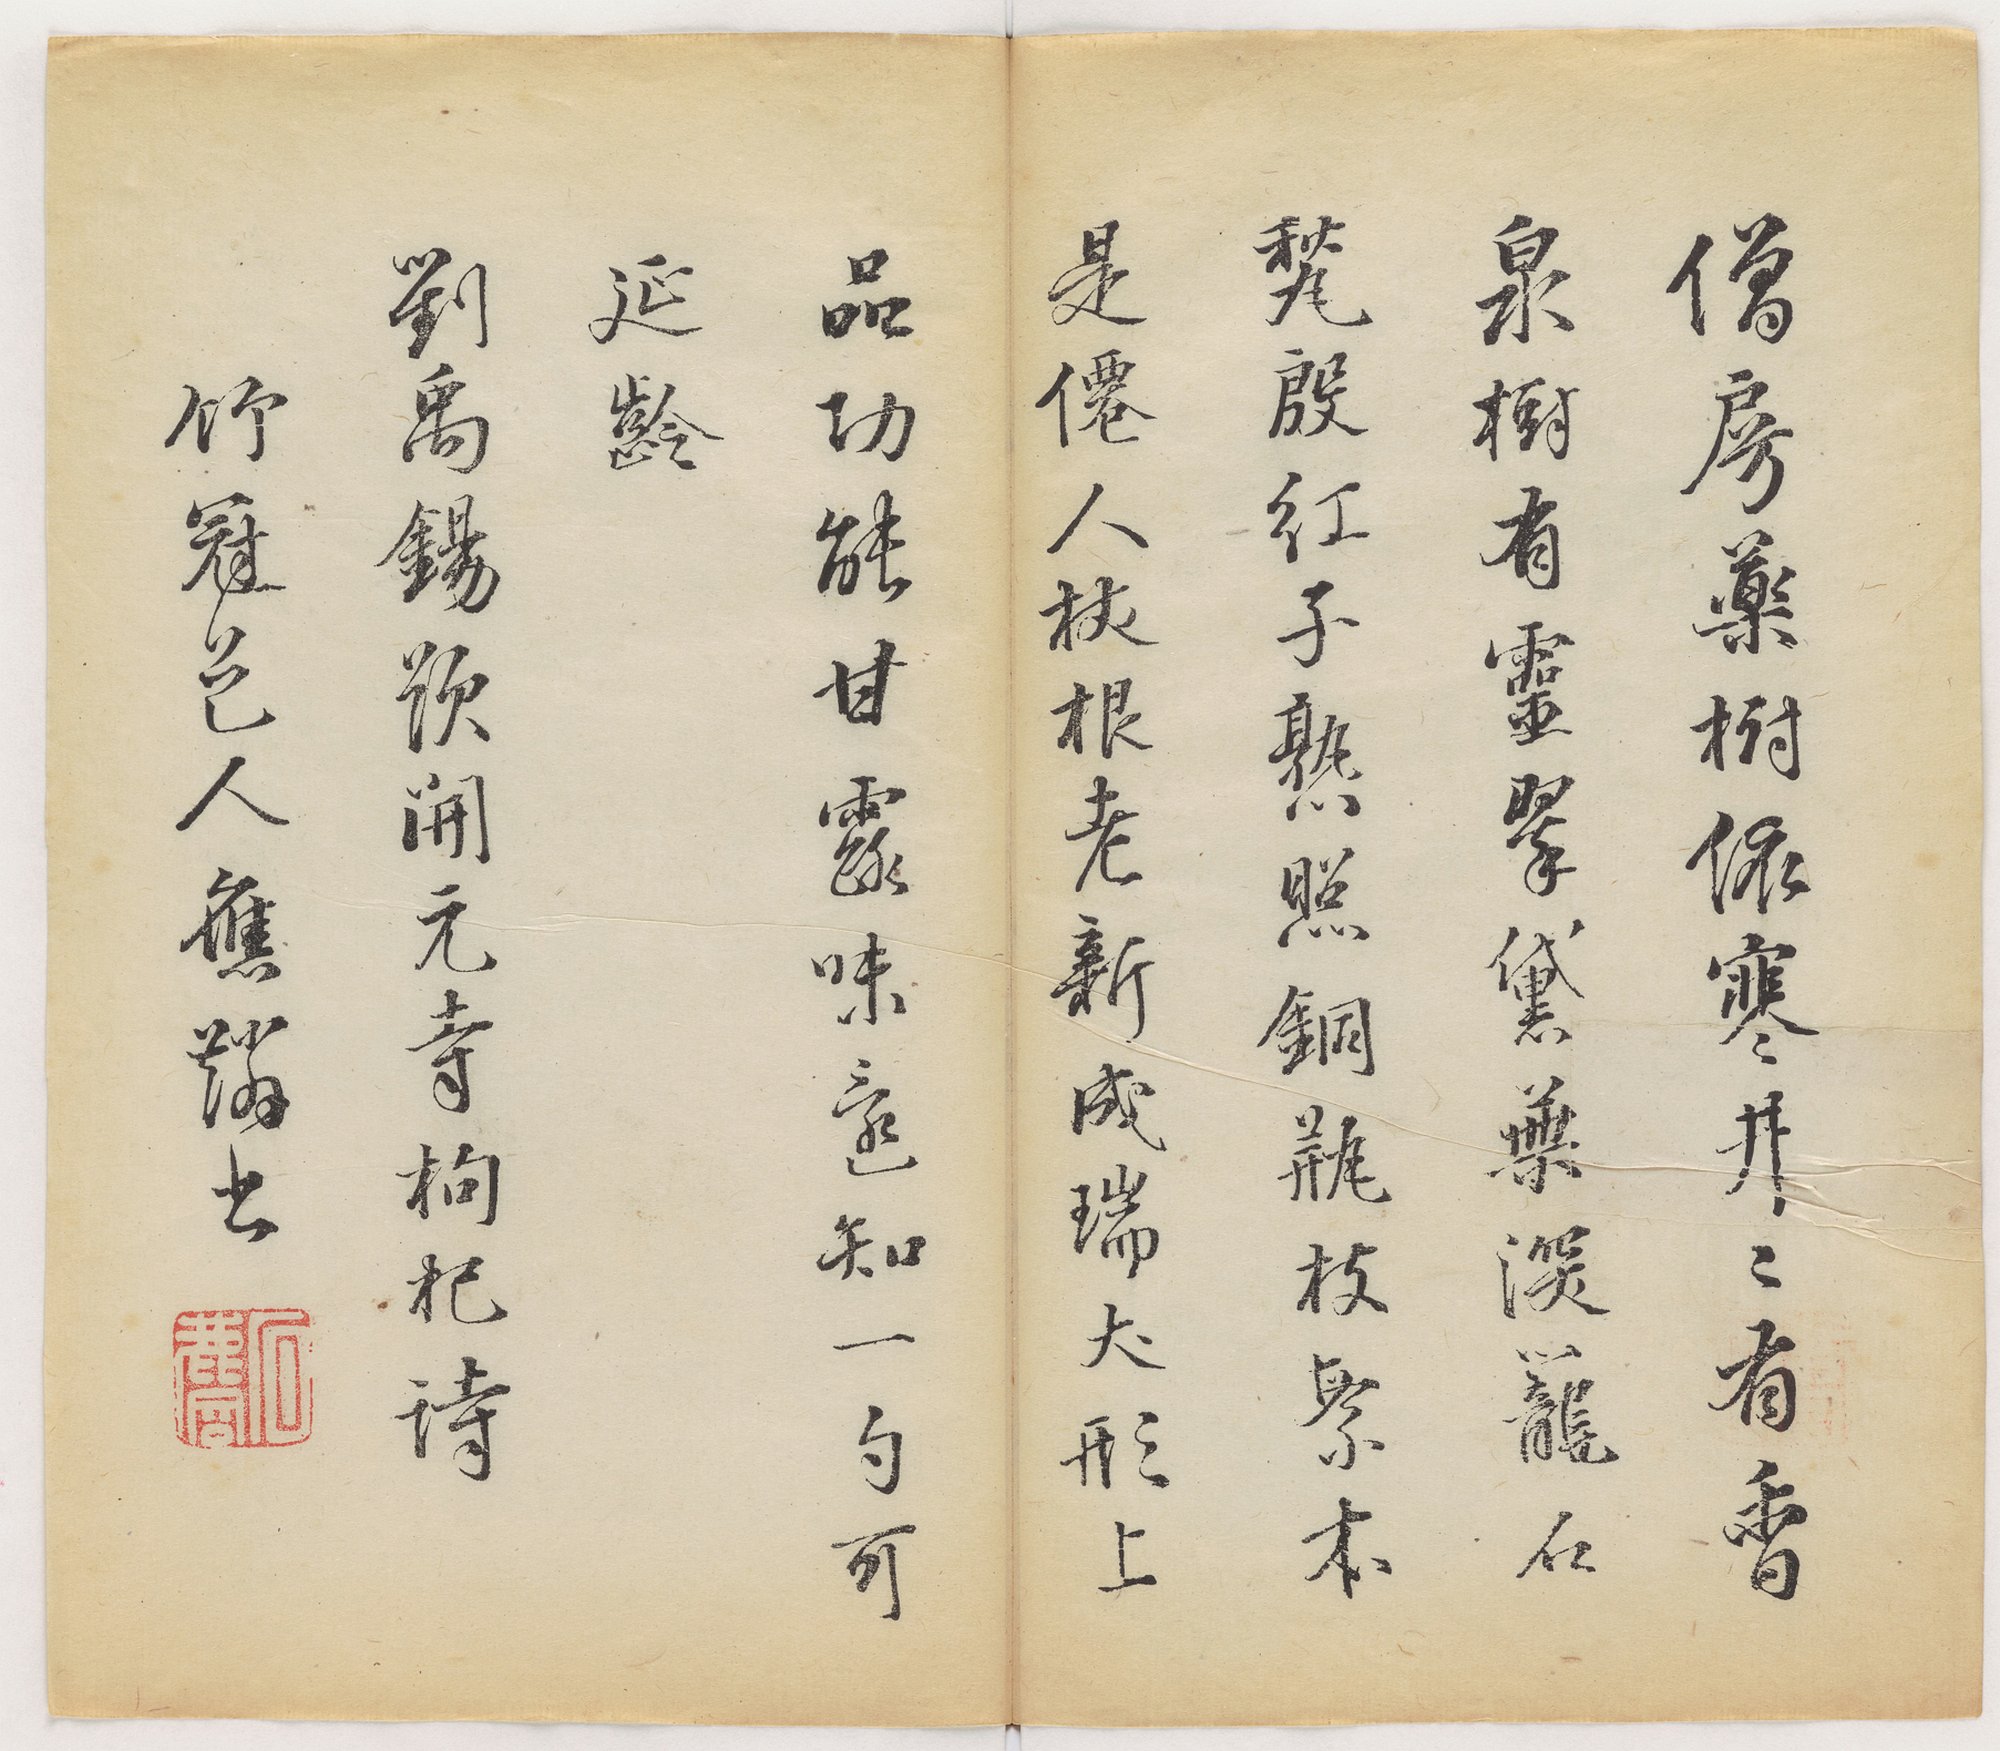 僧房藥樹依寒井二有香
泉樹有靈翠黛葉深籠石
甃殷紅子熟照銅瓶枝繁本
是僊人杖根老新成瑞犬形上
品功能甘露味還知一勺可
延齡
劉禹錫題開元寺枸杞詩
竹冠道人應麟書